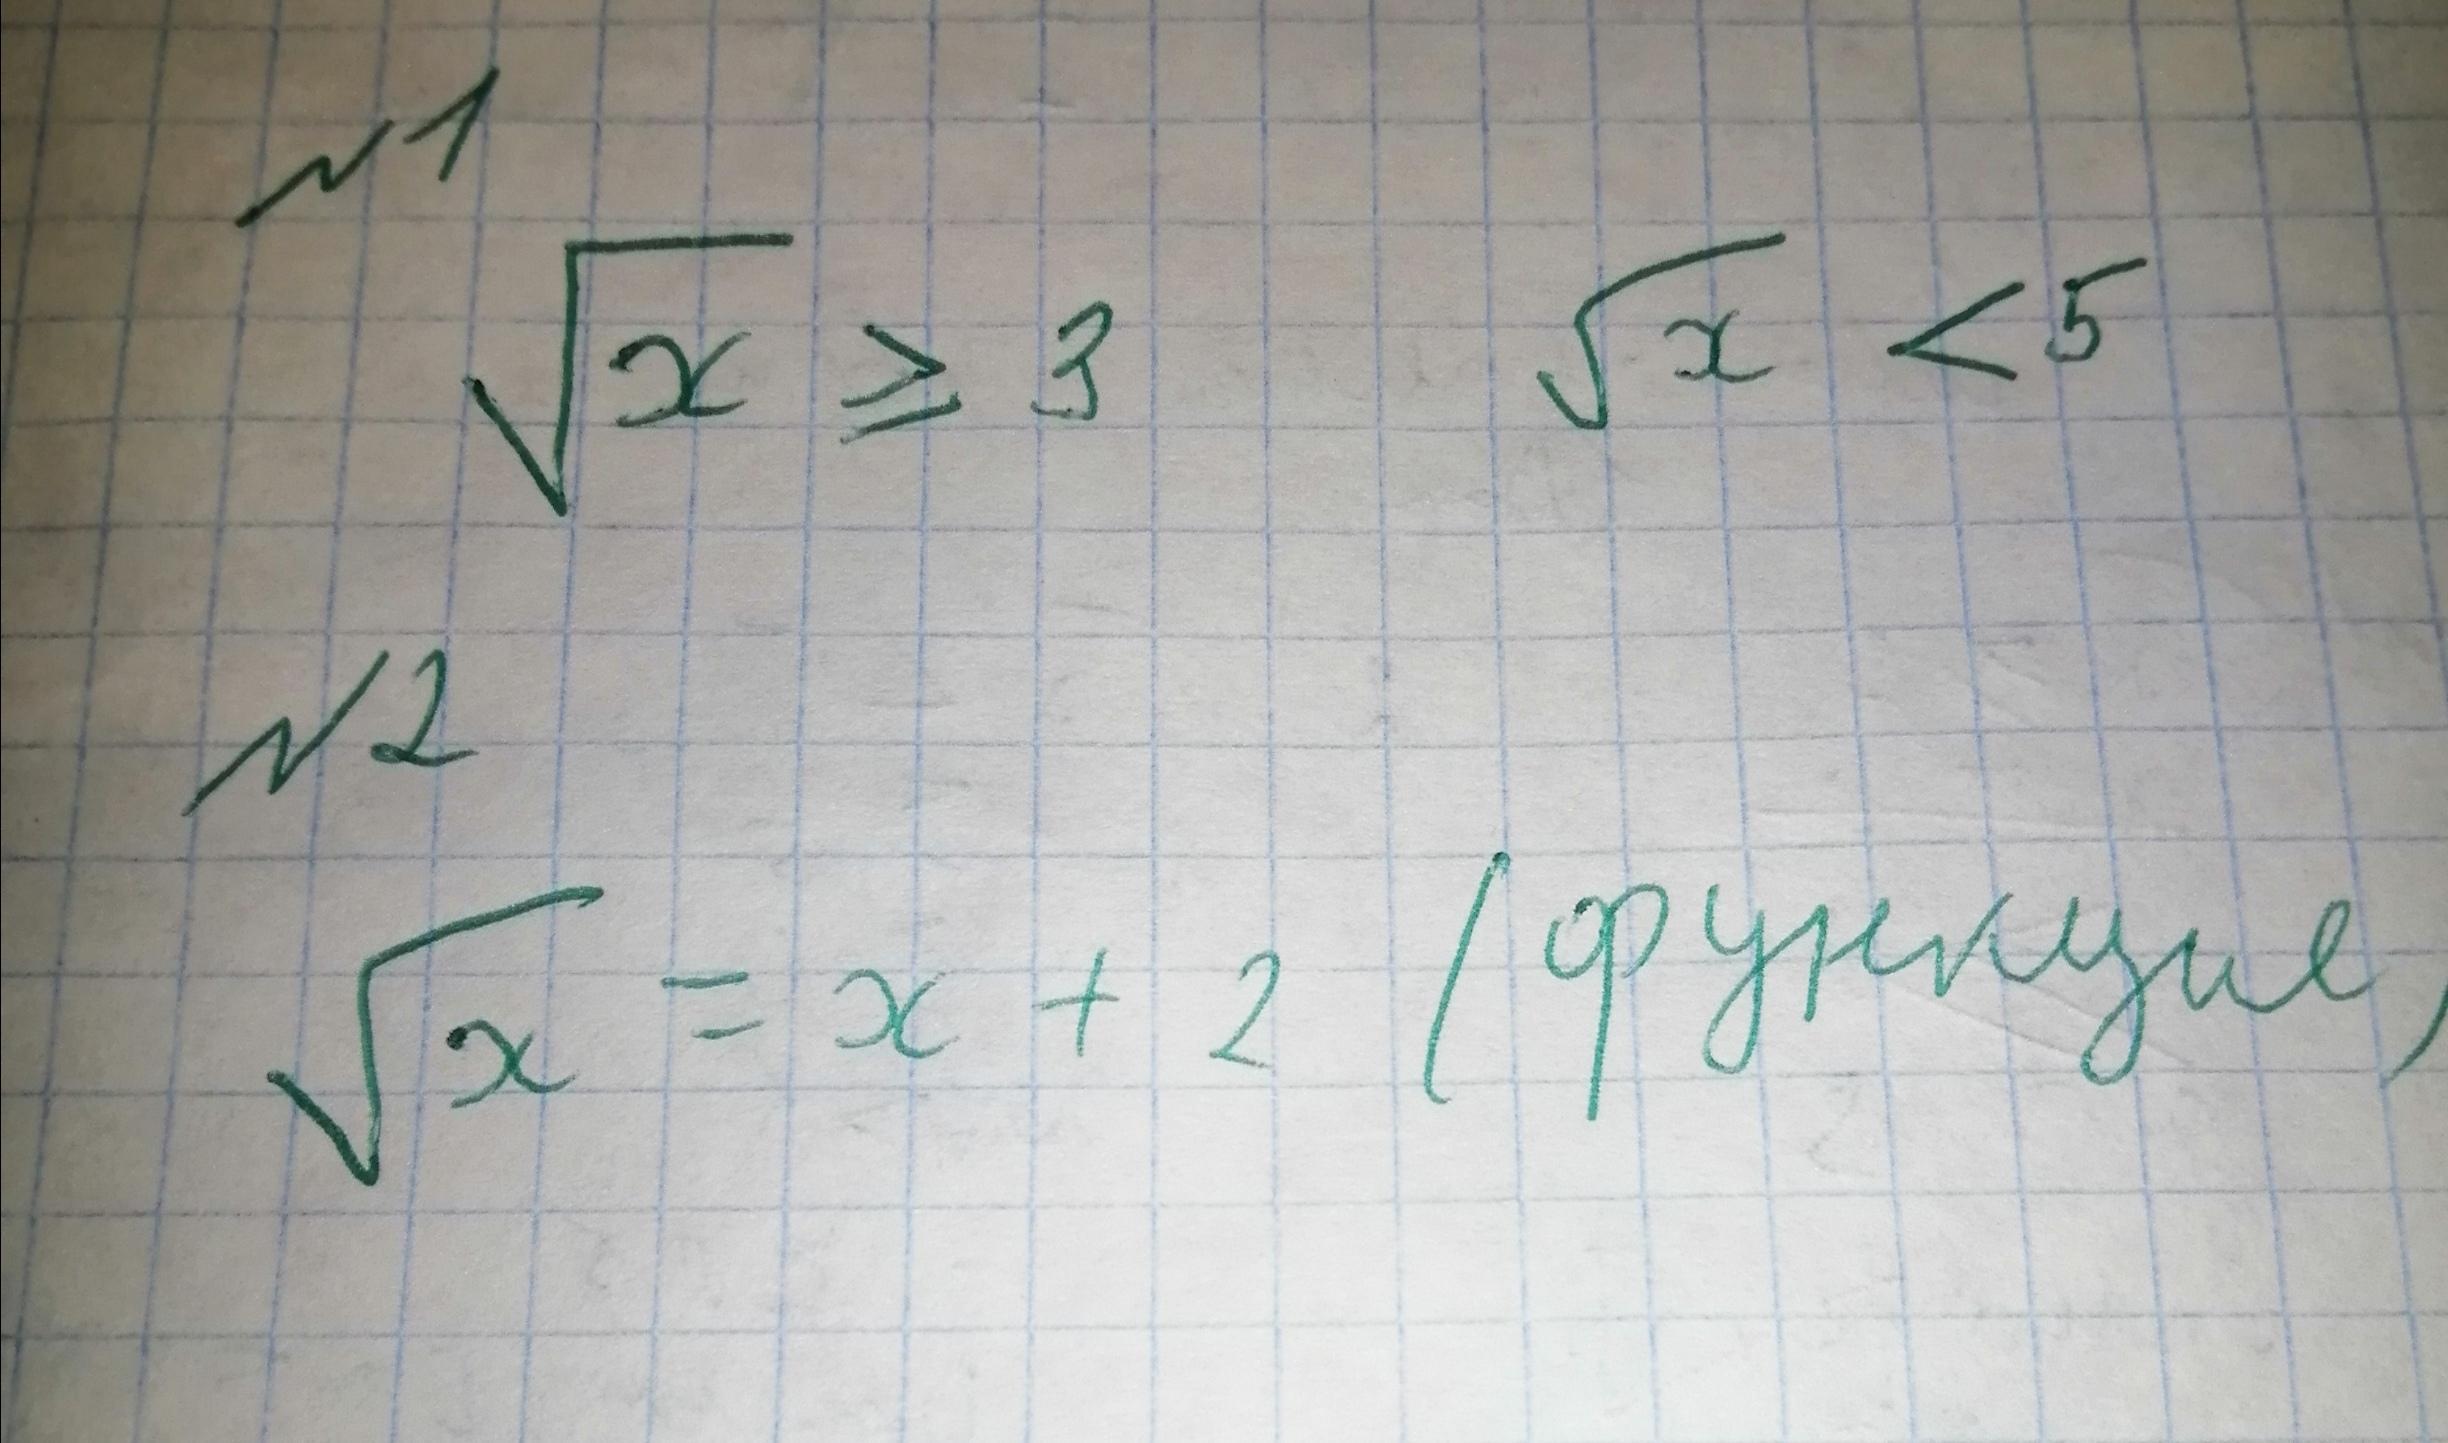 №1
√x ≥ 3 √x < 5
№2
√x = x + 2 (функция)